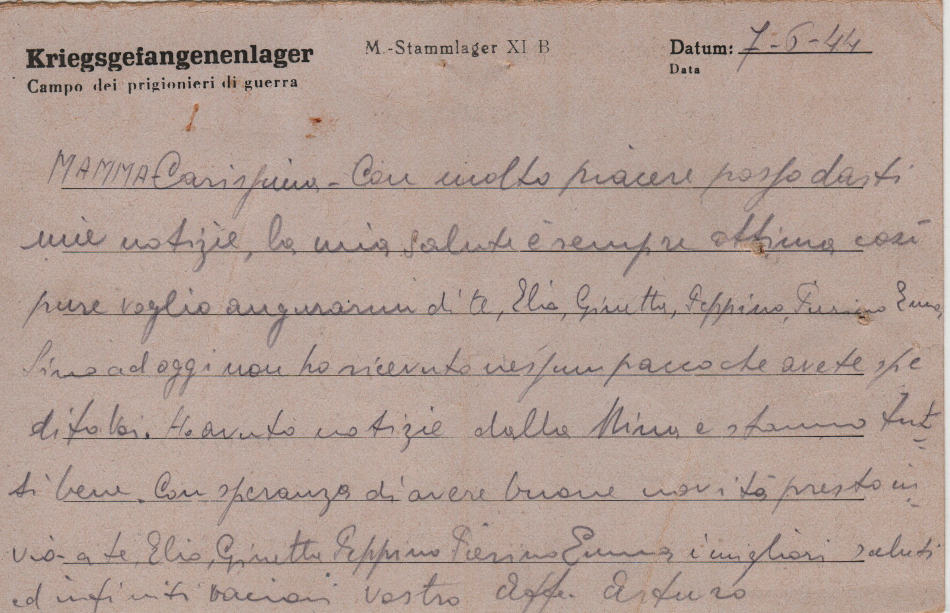 Kriegsgefangenenlager
Campo dei prigionieri di guerra
M.-Stammlager XI B
Datum: 7-6-44
Data
MAMMA Carissima - Con molto piacere posso darti
mie notizie, la mia salute è sempre ottima così
pure voglio augurarmi di te, Elia, Ginetta, Peppino, Pierino Emma,
Sino ad oggi non ho ricevuto nessun pacco che avete spe
dito Voi. Ho avuto notizie dalla Mina e stanno tut-
ti bene. Con speranza di avere buone novità presto in-
vio a te, Elia, Ginetta Peppino Pierino Emma i migliori saluti
ed infiniti bacioni vostro Aff. Arturo